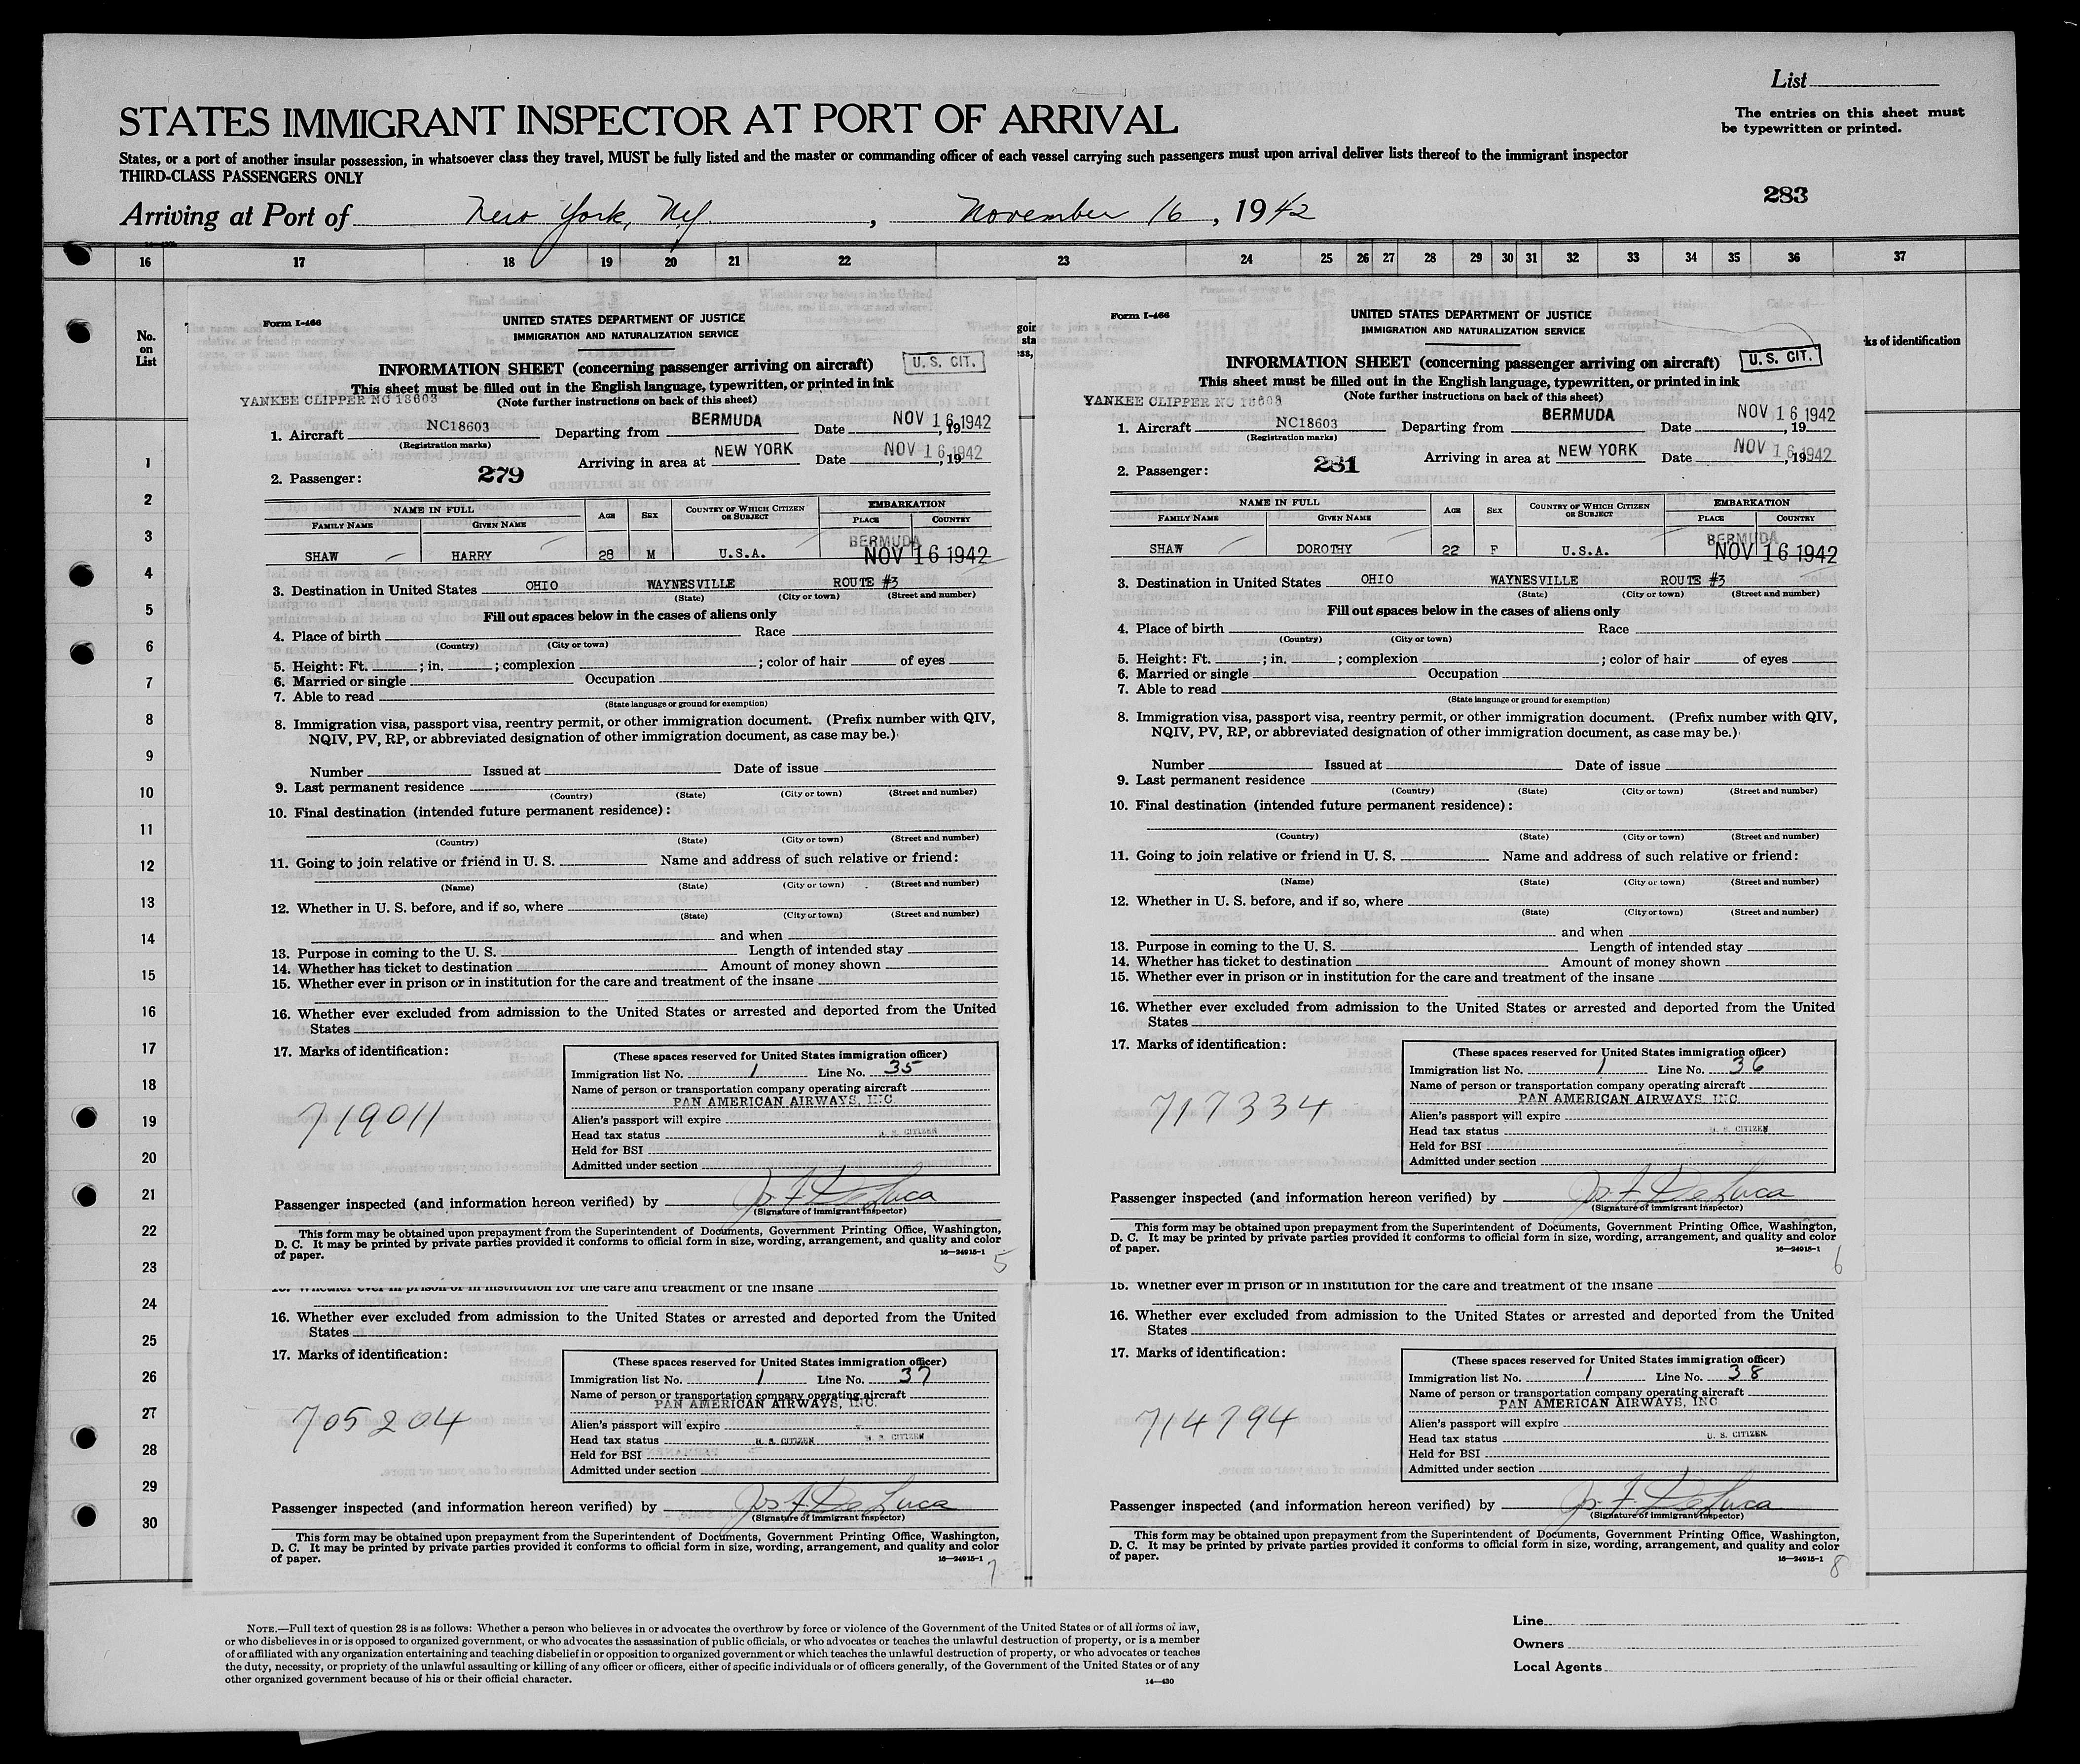 List
STATES IMMIGRANT INSPECTOR AT PORT OF ARRIVAL
The entries on this sheet must
be typewritten or printed.
States, or a port of another insular possession, in whatsoever class they travel, MUST be fully listed and the master or commanding officer of each vessel carrying such passengers must upon arrival deliver lists thereof to the immigrant inspector
THIRD-CLASS PASSENGERS ONLY
283
Arriving at Port of New York, N.Y. , November 16 , 1942
16 17 18 19 20 21 22 23 24 25 26 27 28 29 30 31 32 33 34 35 36 37
No.
on
List
ks of identification
1
2
3
4
5
6
7
8
9
10
11
12
13
14
15
16
17
18
19
20
21
22
23
24
25
26
27
28
29
30
Form I-466
UNITED STATES DEPARTMENT OF JUSTICE
IMMIGRATION AND NATURALIZATION SERVICE
INFORMATION SHEET (concerning passenger arriving on aircraft)
U. S. CIT.
This sheet must be filled out in the English language, typewritten, or printed in ink
YANKEE CLIPPER NC 18603
(Note further instructions on back of this sheet)
1. Aircraft NC18603 Departing from BERMUDA Date NOV 16 1942, 19
(Registration marks)
Arriving in area at NEW YORK Date NOV 16 1942, 19
2. Passenger: 279
NAME IN FULL AGE SEX COUNTRY OF WHICH CITIZEN OR SUBJECT EMBARKATION
FAMILY NAME GIVEN NAME PLACE COUNTRY
BERMUDA
SHAW HARRY 28 M U.S.A. NOV 16 1942
3. Destination in United States OHIO WAYNESVILLE ROUTE #3
(State) (City or town) (Street and number)
Fill out spaces below in the cases of aliens only
4. Place of birth Race
(Country) (City or town)
5. Height: Ft. ; in. ; complexion ; color of hair of eyes
6. Married or single Occupation
7. Able to read
(State language or ground for exemption)
8. Immigration visa, passport visa, reentry permit, or other immigration document. (Prefix number with QIV,
NQIV, PV, RP, or abbreviated designation of other immigration document, as case may be.)
Number Issued at Date of issue
9. Last permanent residence
(Country) (State) (City or town) (Street and number)
10. Final destination (intended future permanent residence):
(Country) (State) (City or town) (Street and number)
11. Going to join relative or friend in U. S. Name and address of such relative or friend:
(Name) (State) (City or town) (Street and number)
12. Whether in U. S. before, and if so, where
(State) (City or town) (Street and number)
and when
13. Purpose in coming to the U. S. Length of intended stay
14. Whether has ticket to destination Amount of money shown
15. Whether ever in prison or in institution for the care and treatment of the insane
16. Whether ever excluded from admission to the United States or arrested and deported from the United
States
17. Marks of identification:
719011
(These spaces reserved for United States immigration officer)
Immigration list No. 1 Line No. 35
Name of person or transportation company operating aircraft
PAN AMERICAN AIRWAYS, INC.
Alien's passport will expire
Head tax status U. S. CITIZEN
Held for BSI
Admitted under section
Passenger inspected (and information hereon verified) by Jos F. De Luca
(Signature of immigrant inspector)
This form may be obtained upon prepayment from the Superintendent of Documents, Government Printing Office, Washington,
D. C. It may be printed by private parties provided it conforms to official form in size, wording, arrangement, and quality and color
of paper.
16—24915-1
5
Form I-466
UNITED STATES DEPARTMENT OF JUSTICE
IMMIGRATION AND NATURALIZATION SERVICE
INFORMATION SHEET (concerning passenger arriving on aircraft)
U. S. CIT.
This sheet must be filled out in the English language, typewritten, or printed in ink
YANKEE CLIPPER NC 18603
(Note further instructions on back of this sheet)
1. Aircraft NC18603 Departing from BERMUDA Date NOV 16 1942, 19
(Registration marks)
Arriving in area at NEW YORK Date NOV 16 1942, 19
2. Passenger: 281
NAME IN FULL AGE SEX COUNTRY OF WHICH CITIZEN OR SUBJECT EMBARKATION
FAMILY NAME GIVEN NAME PLACE COUNTRY
BERMUDA
SHAW DOROTHY 22 F U.S.A. NOV 16 1942
3. Destination in United States OHIO WAYNESVILLE ROUTE #3
(State) (City or town) (Street and number)
Fill out spaces below in the cases of aliens only
4. Place of birth Race
(Country) (City or town)
5. Height: Ft. ; in. ; complexion ; color of hair of eyes
6. Married or single Occupation
7. Able to read
(State language or ground for exemption)
8. Immigration visa, passport visa, reentry permit, or other immigration document. (Prefix number with QIV,
NQIV, PV, RP, or abbreviated designation of other immigration document, as case may be.)
Number Issued at Date of issue
9. Last permanent residence
(Country) (State) (City or town) (Street and number)
10. Final destination (intended future permanent residence):
(Country) (State) (City or town) (Street and number)
11. Going to join relative or friend in U. S. Name and address of such relative or friend:
(Name) (State) (City or town) (Street and number)
12. Whether in U. S. before, and if so, where
(State) (City or town) (Street and number)
and when
13. Purpose in coming to the U. S. Length of intended stay
14. Whether has ticket to destination Amount of money shown
15. Whether ever in prison or in institution for the care and treatment of the insane
16. Whether ever excluded from admission to the United States or arrested and deported from the United
States
17. Marks of identification:
717334
(These spaces reserved for United States immigration officer)
Immigration list No. 1 Line No. 36
Name of person or transportation company operating aircraft
PAN AMERICAN AIRWAYS, INC
Alien's passport will expire
Head tax status U. S. CITIZEN
Held for BSI
Admitted under section
Passenger inspected (and information hereon verified) by Jos F. De Luca
(Signature of immigrant inspector)
This form may be obtained upon prepayment from the Superintendent of Documents, Government Printing Office, Washington,
D. C. It may be printed by private parties provided it conforms to official form in size, wording, arrangement, and quality and color
of paper.
16—24915-1
6
15. Whether ever in prison or in institution for the care and treatment of the insane
16. Whether ever excluded from admission to the United States or arrested and deported from the United
States
17. Marks of identification:
705204
(These spaces reserved for United States immigration officer)
Immigration list No. 1 Line No. 37
Name of person or transportation company operating aircraft
PAN AMERICAN AIRWAYS, INC.
Alien's passport will expire
Head tax status U. S. CITIZEN U. S. CITIZEN
Held for BSI
Admitted under section
Passenger inspected (and information hereon verified) by Jos F. De Luca
(Signature of immigrant inspector)
This form may be obtained upon prepayment from the Superintendent of Documents, Government Printing Office, Washington,
D. C. It may be printed by private parties provided it conforms to official form in size, wording, arrangement, and quality and color
of paper.
16—24915-1
7
15. Whether ever in prison or in institution for the care and treatment of the insane
16. Whether ever excluded from admission to the United States or arrested and deported from the United
States
17. Marks of identification:
714794
(These spaces reserved for United States immigration officer)
Immigration list No. 1 Line No. 38
Name of person or transportation company operating aircraft
PAN AMERICAN AIRWAYS, INC
Alien's passport will expire
Head tax status U. S. CITIZEN
Held for BSI
Admitted under section
Passenger inspected (and information hereon verified) by Jos F. De Luca
(Signature of immigrant inspector)
This form may be obtained upon prepayment from the Superintendent of Documents, Government Printing Office, Washington,
D. C. It may be printed by private parties provided it conforms to official form in size, wording, arrangement, and quality and color
of paper.
16—24915-1
8
NOTE.—Full text of question 28 is as follows: Whether a person who believes in or advocates the overthrow by force or violence of the Government of the United States or of all forms of law,
or who disbelieves in or is opposed to organized government, or who advocates the assassination of public officials, or who advocates or teaches the unlawful destruction of property, or is a member
of or affiliated with any organization entertaining and teaching disbelief in or opposition to organized government or which teaches the unlawful destruction of property, or who advocates or teaches
the duty, necessity, or propriety of the unlawful assaulting or killing of any officer or officers, either of specific individuals or of officers generally, of the Government of the United States or of any
other organized government because of his or their official character.
14—430
Line
Owners
Local Agents